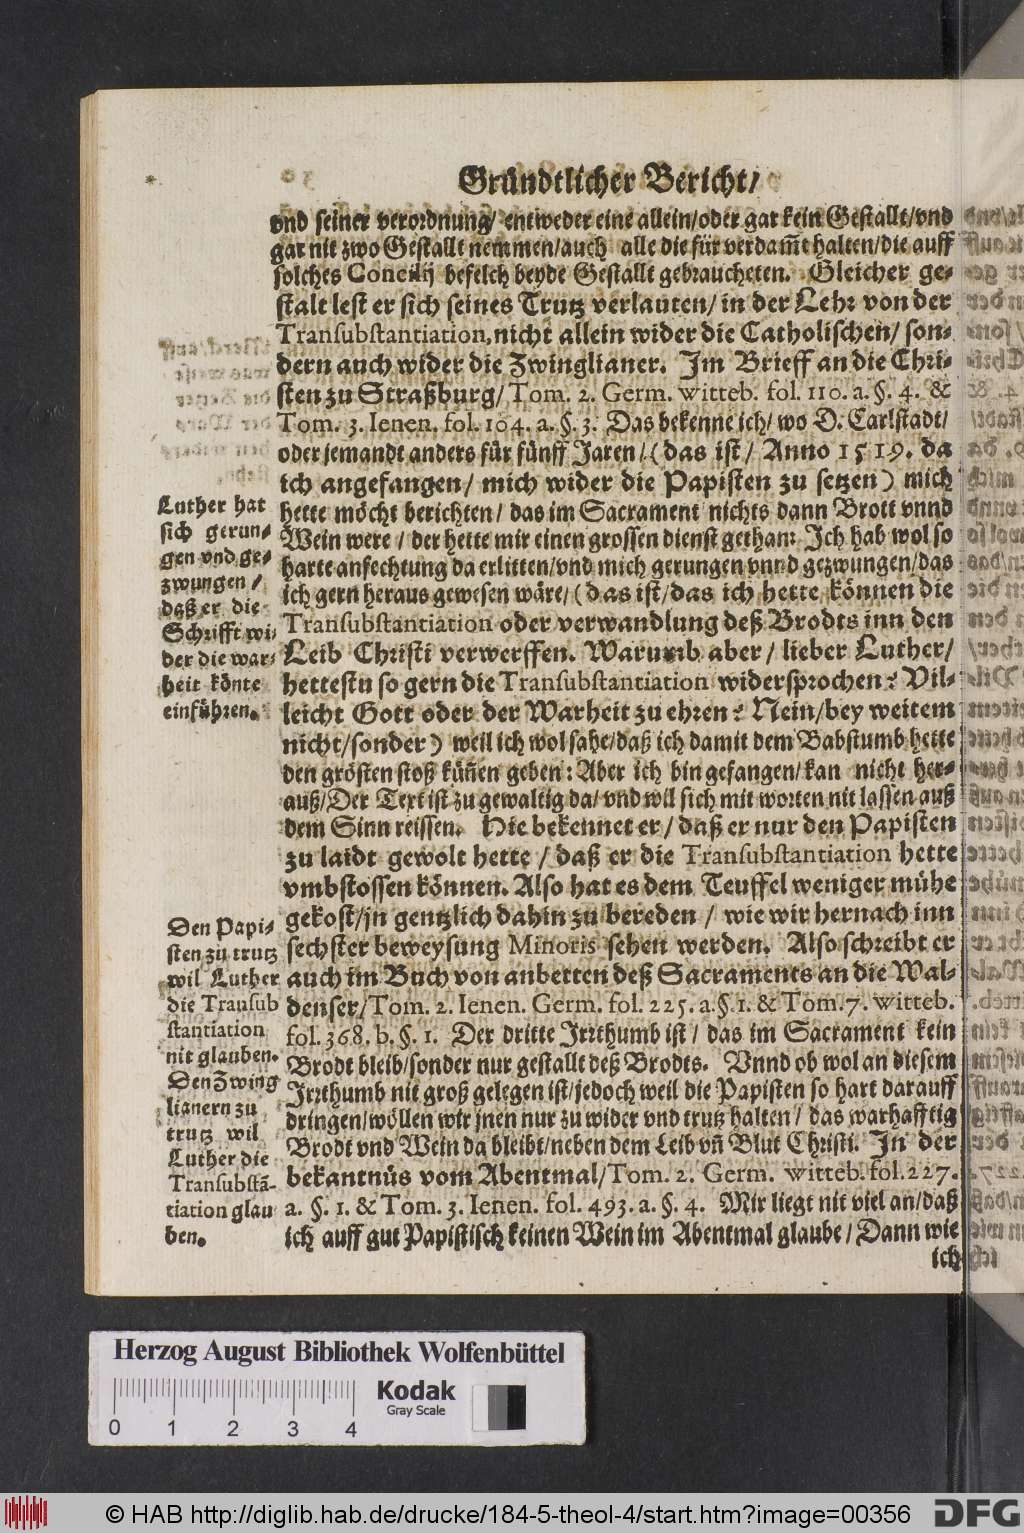 Gründtlicher Bericht/
vnd seiner verordnung/ entweder eine allein/oder gar kein Gestallt/vnd
gar nit zwo Gestallt nemmen/auch alle die für verdam̃t halten/die auff
solches Concilij befelch beyde Gestallt gebraucheten. Gleicher ge-
stalt lest er sich seines Trutz verlauten/ in der Lehr von der
Transubstantiation, nicht allein wider die Catholischen/ son-
dern auch wider die Zwinglianer. Im Brieff an die Chri-
sten zu Straßburg/Tom. 2. Germ. witteb. fol. 110. a. §. 4. &
Tom. 3. Ienen. fol. 104. a. §. 3. Das bekenne ich/ wo D. Carlstadt/
oder jemandt anders für fünff Jaren/ (das ist/ Anno 1519. da
ich angefangen/ mich wider die Papisten zu setzen) mich
hette möcht berichten/ das im Sacrament nichts dann Brott vnnd
Wein were/ der hette mir einen grossen dienst gethan: Ich hab wol so
harte anfechtung da erlitten/vnd mich gerungen vnnd gezwungen/das
ich gern heraus gewesen wäre/ (das ist/das ich hette können die
Transubstantiation oder verwandlung deß Brodts inn den
Leib Christi verwerffen. Warumb aber/ lieber Luther/
hettestu so gern die Transubstantiation widersprochen? Vil-
leicht Gott oder der Warheit zu ehren? Nein/bey weitem
nicht/sonder) weil ich wol sahe/daß ich damit dem Babstumb hette
den grösten stoß kün̄en geben: Aber ich bin gefangen/ kan nicht her-
auß/Der Text ist zu gewaltig da/ vnd wil sich mit worten nit lassen auß
dem Sinn reissen. Hie bekennet er/ daß er nur den Papisten
zu laidt gewolt hette/ daß er die Transubstantiation hette
vmbstossen können. Also hat es dem Teuffel weniger mühe
gekost/jn gentzlich dahin zu bereden/ wie wir hernach inn
sechster beweysung Minoris sehen werden. Also schreibt er
auch im Buch von anbetten deß Sacraments an die Wal-
denser/Tom. 2. Ienen. Germ. fol. 225. a. §. 1. & Tom. 7. witteb.
fol. 368. b. §. 1. Der dritte Irrthumb ist/ das im Sacrament kein
Brodt bleib/sonder nur gestallt deß Brodts. Vnnd ob wol an diesem
Irrthumb nit groß gelegen ist/jedoch weil die Papisten so hart darauff
dringen/wöllen wir jnen nur zu wider vnd trutz halten/ das warhafftig
Brodt vnd Wein da bleibt/neben dem Leib vn̄ Blut Christi. In der
bekantnüs vom Abentmal/Tom. 2. Germ. witteb. fol. 227.
a. §. 1. & Tom. 3. Ienen. fol. 493. a. §. 4. Mir liegt nit viel an/daß
ich auff gut Papistisch keinen Wein im Abentmal glaube/ Dann wie
ich
Luther hat
sich gerun-
gen vnd ge-
zwungen/
daß er die
Schrifft wi-
der die war-
heit könte
einführen.
Den Papi-
sten zu trutz
wil Luther
die Transub
stantiation
nit glauben.
Den Zwing
lianern zu
trutz wil
Luther die
Transubstā-
tiation glau
ben.
Herzog August Bibliothek Wolfenbüttel
0 1 2 3 4
Kodak
Gray Scale
© HAB http://diglib.hab.de/drucke/184-5-theol-4/start.htm?image=00356
DFG